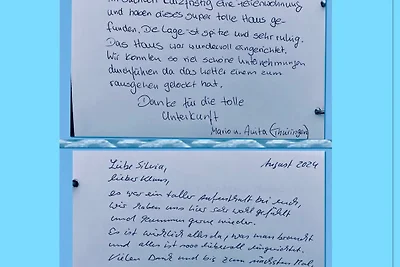 kurzfristig eine Ferienwohnung
und haben dieses super tolle Haus ge-
funden. Die Lage ist spitze und sehr ruhig.
Das Haus war wundervoll eingerichtet.
Wir konnten so viel schöne Unternehmungen
durchführen da das Wetter einem zum
rausgehen gelockt hat.
Danke für die tolle
Unterkunft
Mario u. Anita (Thüringen)
Liebe Silvia, August 2024
lieber Klaus,
es war ein toller Aufenthalt bei euch,
wir haben uns hier sehr wohl gefühlt
und kommen gerne wieder.
Es ist wirklich alles da, was man braucht
und alles ist sooo liebevoll eingerichtet.
Vielen Dank und bis zum nächsten Mal,